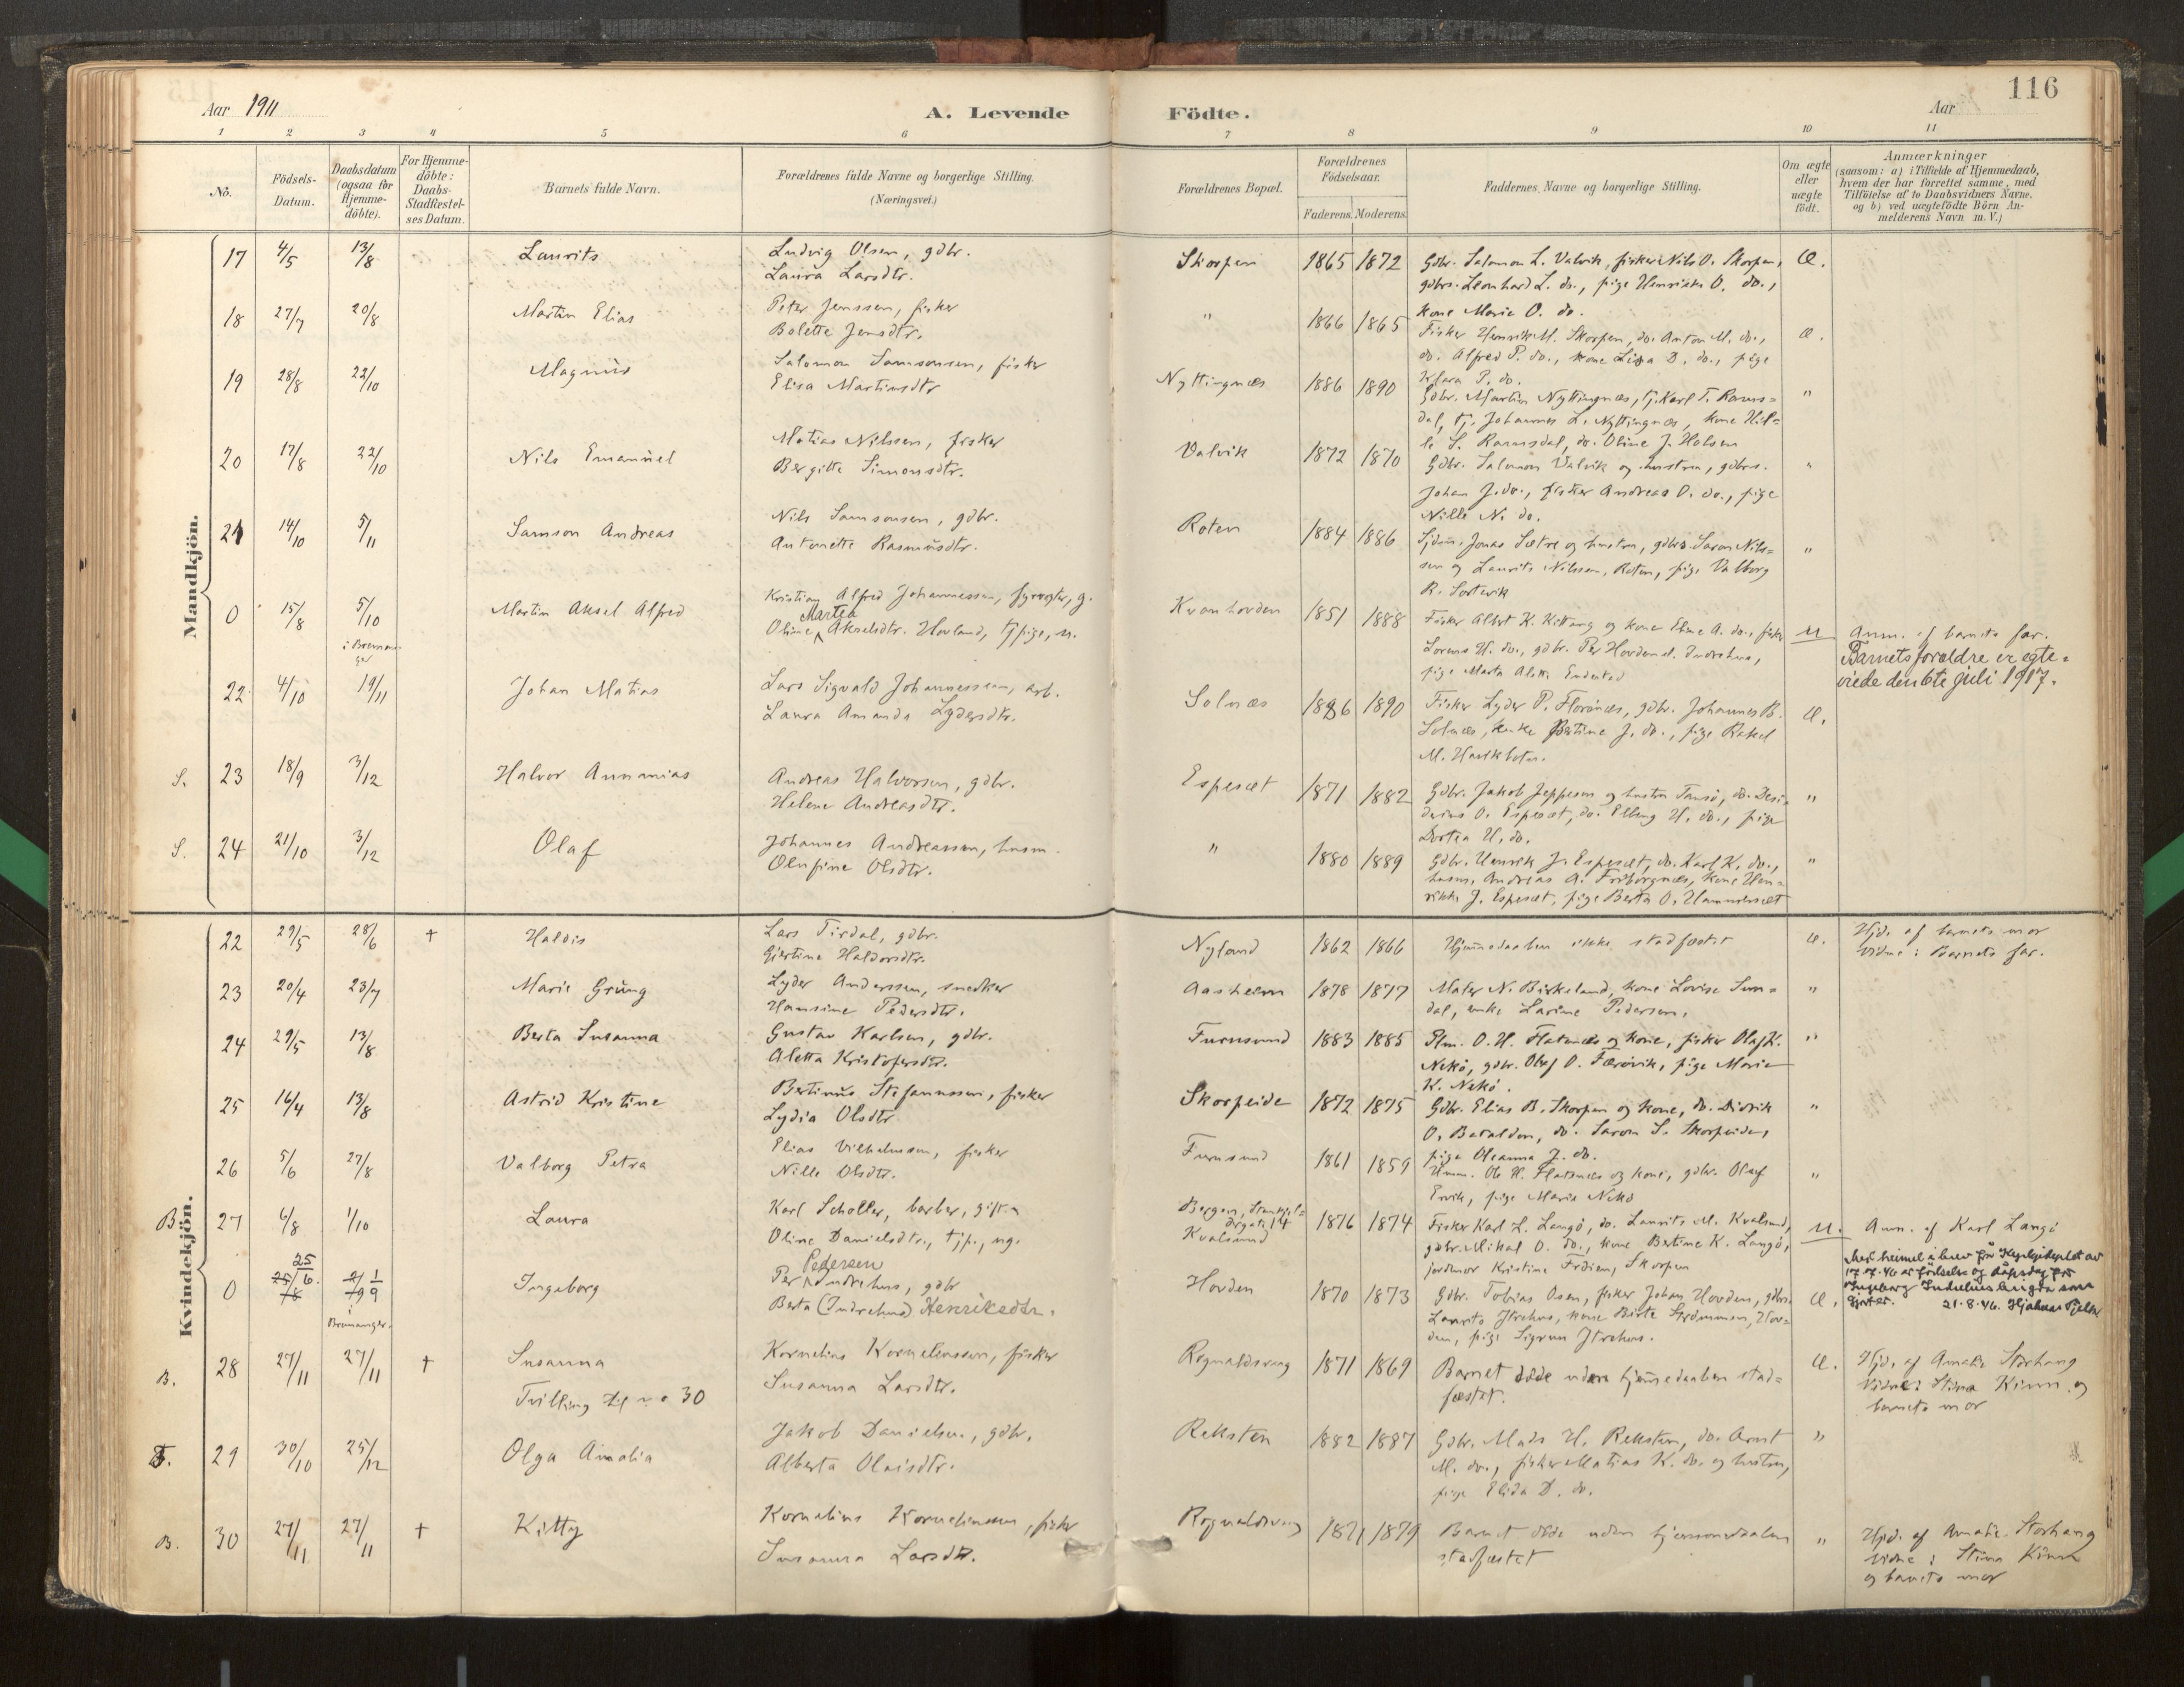 116
Aar 1911 A. Levende Födte. Aar
1 2 3 4 5 6 7 8 9 10 11
Nō. Födsels-Datum. Daabsdatum (ogsaa for Hjemme-döbte). For Hjemme-döbte: Daabs-Stadfæstel-ses Datum. Barnets fulde Navn. Forældrenes fulde Navne og borgerlige Stilling. (Næringsvei.) Forældrenes Bopæl. Forældrenes Födselsaar. Faderens. Moderens. Faddernes Navne og borgerlige Stilling. Om ægte eller uægte födt. Anmærkninger (saasom: a) i Tilfælde af Hjemmedaab, hvem der har forrettet samme, med Tilföielse af to Daabsvidners Navne. og b) ved uægtefödte Börn An-melderens Navn m. V.)
Mandkjön.
17 4/5 13/8 Laurits Ludvig Olsen, gdbr. Skorpen 1865 1872 Gdbr. Salomon L. Valvik, fisker Nils O. Skorpen, Æ.
Laura Larsdtr. gdbrs. Leonhard L. do., pige Henrikke O. do.,
kone Marie O. do.
18 27/7 20/8 Martin Elias Peter Jenssen, fisker " 1866 1865 Fisker Henrik M. Skorpen, do. Anton M. do., æ.
Bolette Jensdtr. do. Alfred P. do., kone Lissa D. do., pige
Klara P. do.
19 28/8 22/10 Magnus Salomon Samsonsen, fisker Nyttingnæs 1886 1890 Gdbr. Martin Nyttingnæs, tj. Karl T. Rams= "
Elisa Martinsdtr dal, tj. Johannes L. Nyttingnæs, kone Hil=
le S. Ramsdal, do. Oline J. Halsen
20 17/8 22/10 Nils Emanuel Matias Nilssen, fisker Valvik 1872 1870 Gdbr. Salomon Valvik og hustru, gdbrs. "
Bergitte Simonsdtr. Johan J. do., fisker Andreas O. do., pige
Nille N. do.
21 14/10 5/11 Samson Andreas Nils Samsonsen, gdbr. Roten 1884 1886 Sjöm. Jonas Sætre og hustru, gdbrs. Saron Nils= "
Antonette Rasmusdtr. sen og Laurits Nilssen, Roten, pige Valborg
R. Sortevik
0 15/8 5/10 i Bremanger Martin Aksel Alfred Kristian Alfred Johannessen, fyrvogter, g. Kvanhovden 1851 1888 Fisker Albert K. Kittang og kone Eline A. do., fisker U Anm. af barnets far.
Oline Martea Akselsdtr. Hovland, tjpige, u. Lorens H. do., gdbr. Per Hovden d. Indrehus, Barnets forældre er egte=
pige Marta Aletta Endestad viede den 6te juli 1917.
22 4/10 19/11 Johan Matias Lars Sigvald Johannessen, arb. Solnæs 1886 1890 Fisker Lyder P. Florönæs, gdbr. Johannes B. Æ.
Laura Amanda Lydersdtr. Solnæs, enke Bertine J. do., pige Rakel
M. Havikboten.
S. 23 18/9 3/12 Halvor Annanias Andreas Halvorsen, gdbr. Espesæt 1871 1882 Gdbr. Jakob Jeppesen og hustru Tansö, do. Desi= "
Helene Andreasdtr. derius O. Espesæt, do. Elling H. do., pige
Dortea H. do.
S. 24 21/10 3/12 Olaf Johannes Andreassen, husm. " 1880 1889 Gdbr. Henrik J. Espesæt, do. Karl K. do., "
Olufine Olsdtr. husm. Andreas A. Friborgnæs, kone Hen=
rikke J. Espesæt, pige Berta O. Hammersæt
Kvindekjön.
22 29/5 28/6 † Haldis Lars Tirdal, gdbr. Nyland 1862 1866 Hjemmedaaben ikke stadfæstet æ. Hjd. af barnets mor
Gjertine Haldorsdtr. Vidne: Barnets far.
23 20/4 23/7 Marie Grung Lyder Anderssen, snedker Aasheim 1878 1877 Maler N. Birkeland, kone Lovise Sun= "
Hansine Pedersdtr. dal, enke Larine Pedersen.
24 29/5 13/8 Berta Susanna Gustav Karlsen, gdbr. Furusund 1883 1885 Hm. O. H. Flatenæs og kone, fisker Olaf K. "
Aletta Kristofersdtr. Nekö, gdbr. Olaf O. Færövik, pige Marie
K. Nekö.
25 16/4 13/8 Astrid Kristine Bertinus Stefanussen, fisker Skorpeide 1872 1875 Gdbr. Elias B. Skorpen og kone, do. Didrik "
Lydia Olsdtr. O. Bataldon, do. Saron S. Skorpeide,
pige Oleanna J. do.
26 5/6 27/8 Valborg Petra Elias Vilhelmsen, fisker Furusund 1861 1859 Husm. Ole H. Flatenæs og kone, gdbr. Olaf "
Nille Olsdtr. Ervik, pige Marie Nekö
B. 27 6/8 1/10 Laura Karl Scholler, barber, gift Bergen, 14 1876 1874 Fisker Karl L. Langö, do. Laurits M. Kvalsund, U. Anm. af Karl Langö
Oline Danielsdtr., tjp., ug. Kvalsund gdbr. Mikal O. do., kone Bertine K. Langö,
jordmor Kristine Frdien, Skorpen
0 25/6 1/9 i Bremanger. Ingeborg Per Pedersen Indrehus, gdbr Hovden 1870 1873 Gdbr. Tobias Osen, fisker Johan Hovden, gdbr. Æ. Med heimel i brev frå Kyrkjedeptet av
Berta (Indrehus) Henriksdtr. Laurits Ytrehus, kone Birte Strömmen, Hov= 17.7.46 er födsels og dåpsdag for
den, pige Sigrun Ytrehus. Ingeborg Indrehus brigda som
Gjort er. 21.8.46. Hjalmar
B. 28 27/11 27/11 † Susanna Kornelius Korneliussen, fisker Rognaldsvaag 1871 1869 Barnet döde uden hjemmedaaben stad= Æ. Hjd. af Amalie Storhaug
Tvilling til no 30 Susanna Larsdtr. fæstet. Vidne: Stina Kinn og
barnets mor
F. 29 30/10 25/12 Olga Amalia Jakob Danielsen, gdbr. Reksten 1882 1887 Gdbr. Mads H. Reksten, do. Arnt "
Alberta Olaisdtr. M. do., fisker Matias K. do. og hustru,
pige Elida D. do.
B. 30 27/11 27/11 † Kitty Kornelius Korneliussen, fisker Rognaldsvaag 1871 1879 Barnet döde uden hjemmedaaben " Hjd. af Amalie Storhaug
Susanna Larsdtr. stadfæstet Vidne: Stina Kinn
og barnets mor